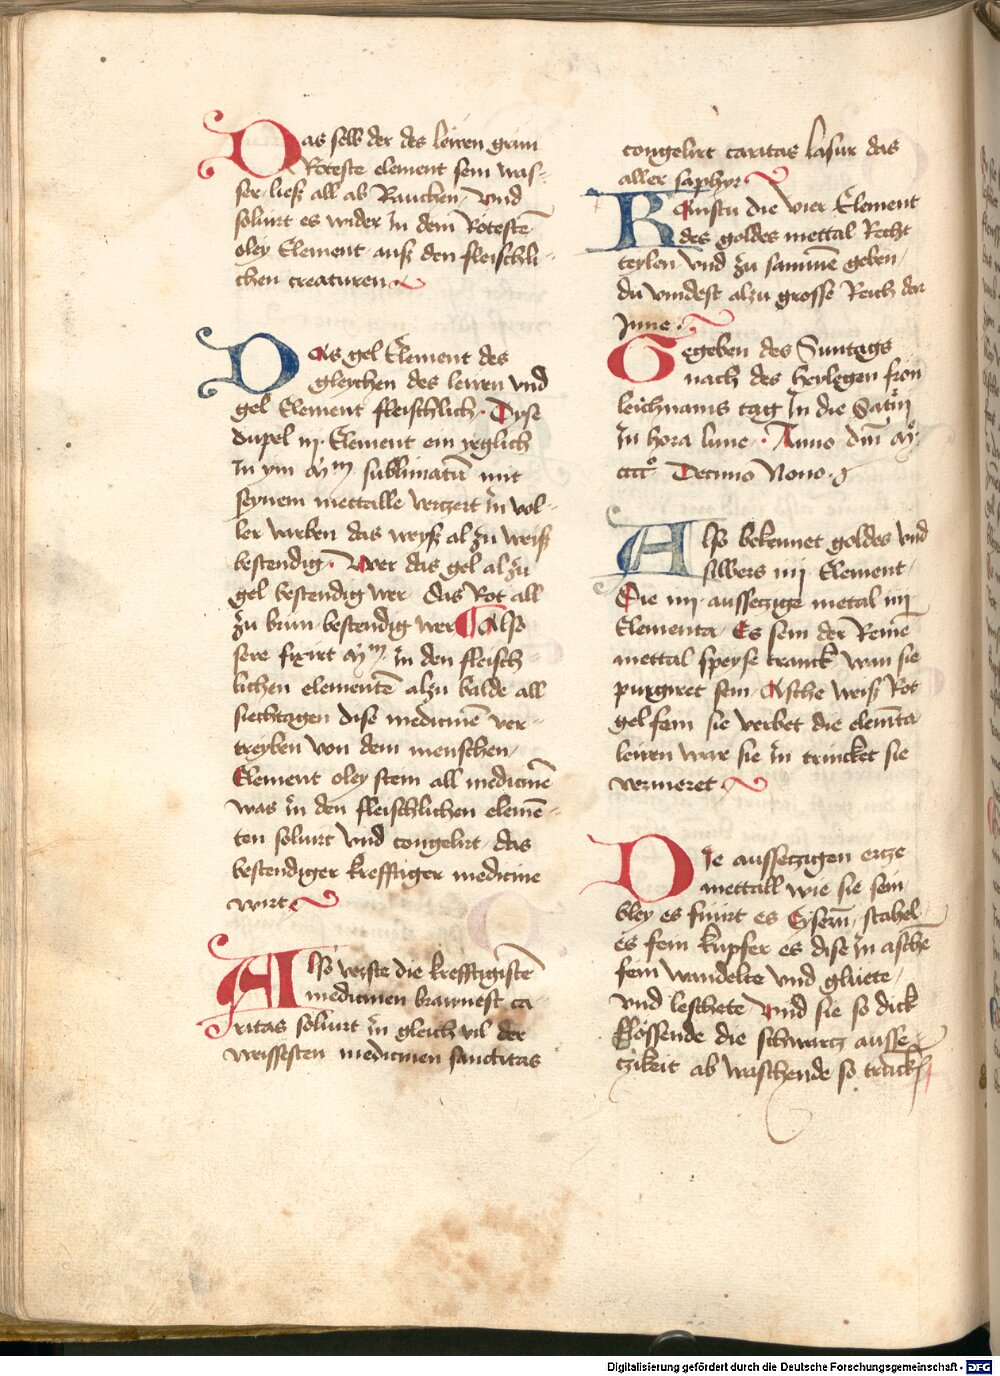 Das selb der des leiren grün
Röteste element sein was-
ser ließ all ab Rauchen vnd
soluirt es wider in dem Rotestē
oley Element auß den fleischli-
chen creaturen
Das gel Element des
gleychen des leiren vnd
gel Element fleischlich. Dyse
dupel iij. Element ein yeglich
in ym sublimatū mit
seynem mettalle verzert in vol-
ler varben das weyß al zu weiß
bestendig. Wer das gel al zu
gel bestendig wer das Rot all
zu brun bestendig wer Also
sere fixirt in den fleisch-
lichen elementē alzu balde all
siechtagen dise medicinē ver-
treyben von dem menschen,
Element oley stein all medicinē
was in den fleischlichen elemē-
ten soluirt vnd congelirt das
bestendiger krefftiger medicine
wirt
Also wiste die krefftigistē
medicinen brawnest ca-
ritas soluirt in gleich vil der
weissesten medicinen sanctitas
congelirt caritas lasur das
aller saphyr
Kanstu die vier Element
des goldes mettal Recht
teylen vnd zu samme geben,
du vindest alzu grosse Reich der
June.
Gegeben des Suntags
nach des heyligen fron
leichnams tag In die
In hora lune. Anno dm̄ Mº
ccccº Decimo Nono.
Also bekennet goldes vnd
silbers iiij Element.
Die iiij. aussetzige metal iiij
Elementa. Es sein der Reinē
mettal speyse tranck wan sie
purgiret sein. Asche weiß Rot
gel sein sie verbet die elemēta
leiren wie sie in trincket sie
vermeret
Die aussetzigen ertze
mettall wie sie sein
bley es suirt es Eyserin, stahel
es sein kupfer es dise in asche
sein wandelte vnd gluete,
vnd leschete vnd sie so dick
flössende die schwartz ausse-
tzikeit ab waschende so trück
Digitalisierung gefördert durch die Deutsche Forschungsgemeinschaft - DFG